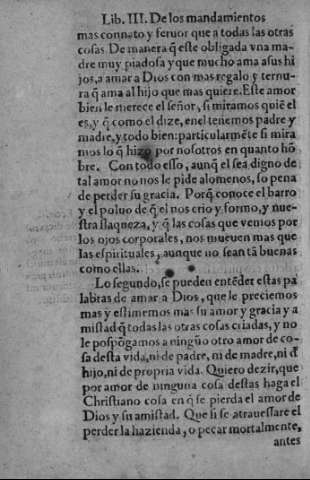 Lib. III. De los mandamientos
mas connato y feruor que a todas las otras
cosas. De manera q̃ este obligada vna ma-
dre muy piadosa y que mucho ama a sus hi
jos, a amar a Dios con mas regalo y ternu-
ra q̃ ama al hijo que mas quiere. Este amor
bien le merece el señor, si miramos quiẽ el
es, y q̃ como el dize, en el tenemos padre y
madre, y todo bien: particularmẽte si mira
mos lo q̃ hizo por nosotros en quanto hõ
bre. Con todo esso, aunq̃ el sea digno de
tal amor no nos le pide alomenos, so pena
de perder su gracia. Porq̃ conoce el barro
y el poluo de q̃ el nos crio y formo, y nue-
stra flaqueza, y q̃ las cosas que vemos por
los ojos corporales, nos mueuen mas que
las espirituales, aunque no sean tã buenas
como ellas.
Lo segundo, se pueden entẽder estas pa
labras de amar a Dios, que le preciemos
mas y estimemos mas su amor y gracia y a
mistad q̃ todas las otras cosas criadas, y no
le pospõgamos a ningũo otro amor de co-
sa desta vida, ni de padre, ni de madre, ni d̃
hijo, ni de propria vida. Quiero dezir, que
por amor de ninguna cosa destas haga el
Christiano cosa en q̃ se pierda el amor de
Dios y su amistad. Que si se atrauessare el
perder la hazienda, o pecar mortalmente,
antes